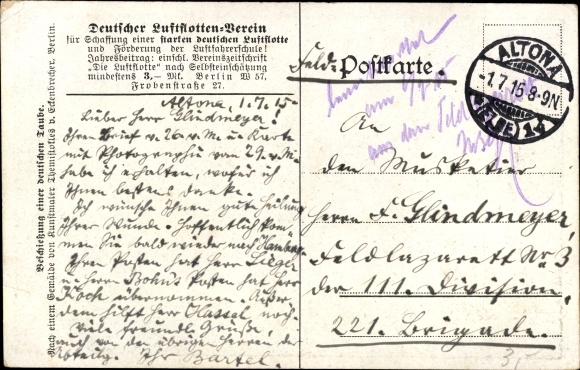 Deutscher Luftflotten-Verein
für Schaffung einer starken deutschen Luftflotte
und Förderung der Luftfahrerschule!
Jahresbeitrag: einschl. Vereinszeitschrift
„Die Luftflotte“ nach Selbsteinschätzung
mindestens 3,— Mk. Berlin W 57,
Frobenstraße 27.
Beschießung einer deutschen Taube.
Nach einem Gemälde von Kunstmaler Themistokles v. Eckenbrecher, Berlin.
Altona, 1.7.15.
Lieber Herr Glindmeyer!
Ihren Brief v. 26. v. M. u. Karte
mit Photographie vom 29. v. M.
habe ich erhalten, wofür ich
Ihnen bestens danke.
Ich wünsche Ihnen gute Heilung
Ihrer Wunde. Hoffentlich kom-
men Sie bald wieder nach Hamburg
Ihren Posten hat Herr
u. Herrn Posten hat Herr
Koch übernommen. Außer-
dem hilft Herr Hassel noch.
Viele freundl. Grüße,
auch von den übrigen Herren der
Abteilg. Ihr Bartel.
Feld-Postkarte.
ALTONA
-1.7.15 8-9N
(ELBE) 1
An
den Musketier
Herrn F. Glindmeyer,
Feldlazarett Nr. 3
der 111. Division,
221. Brigade.
3,-